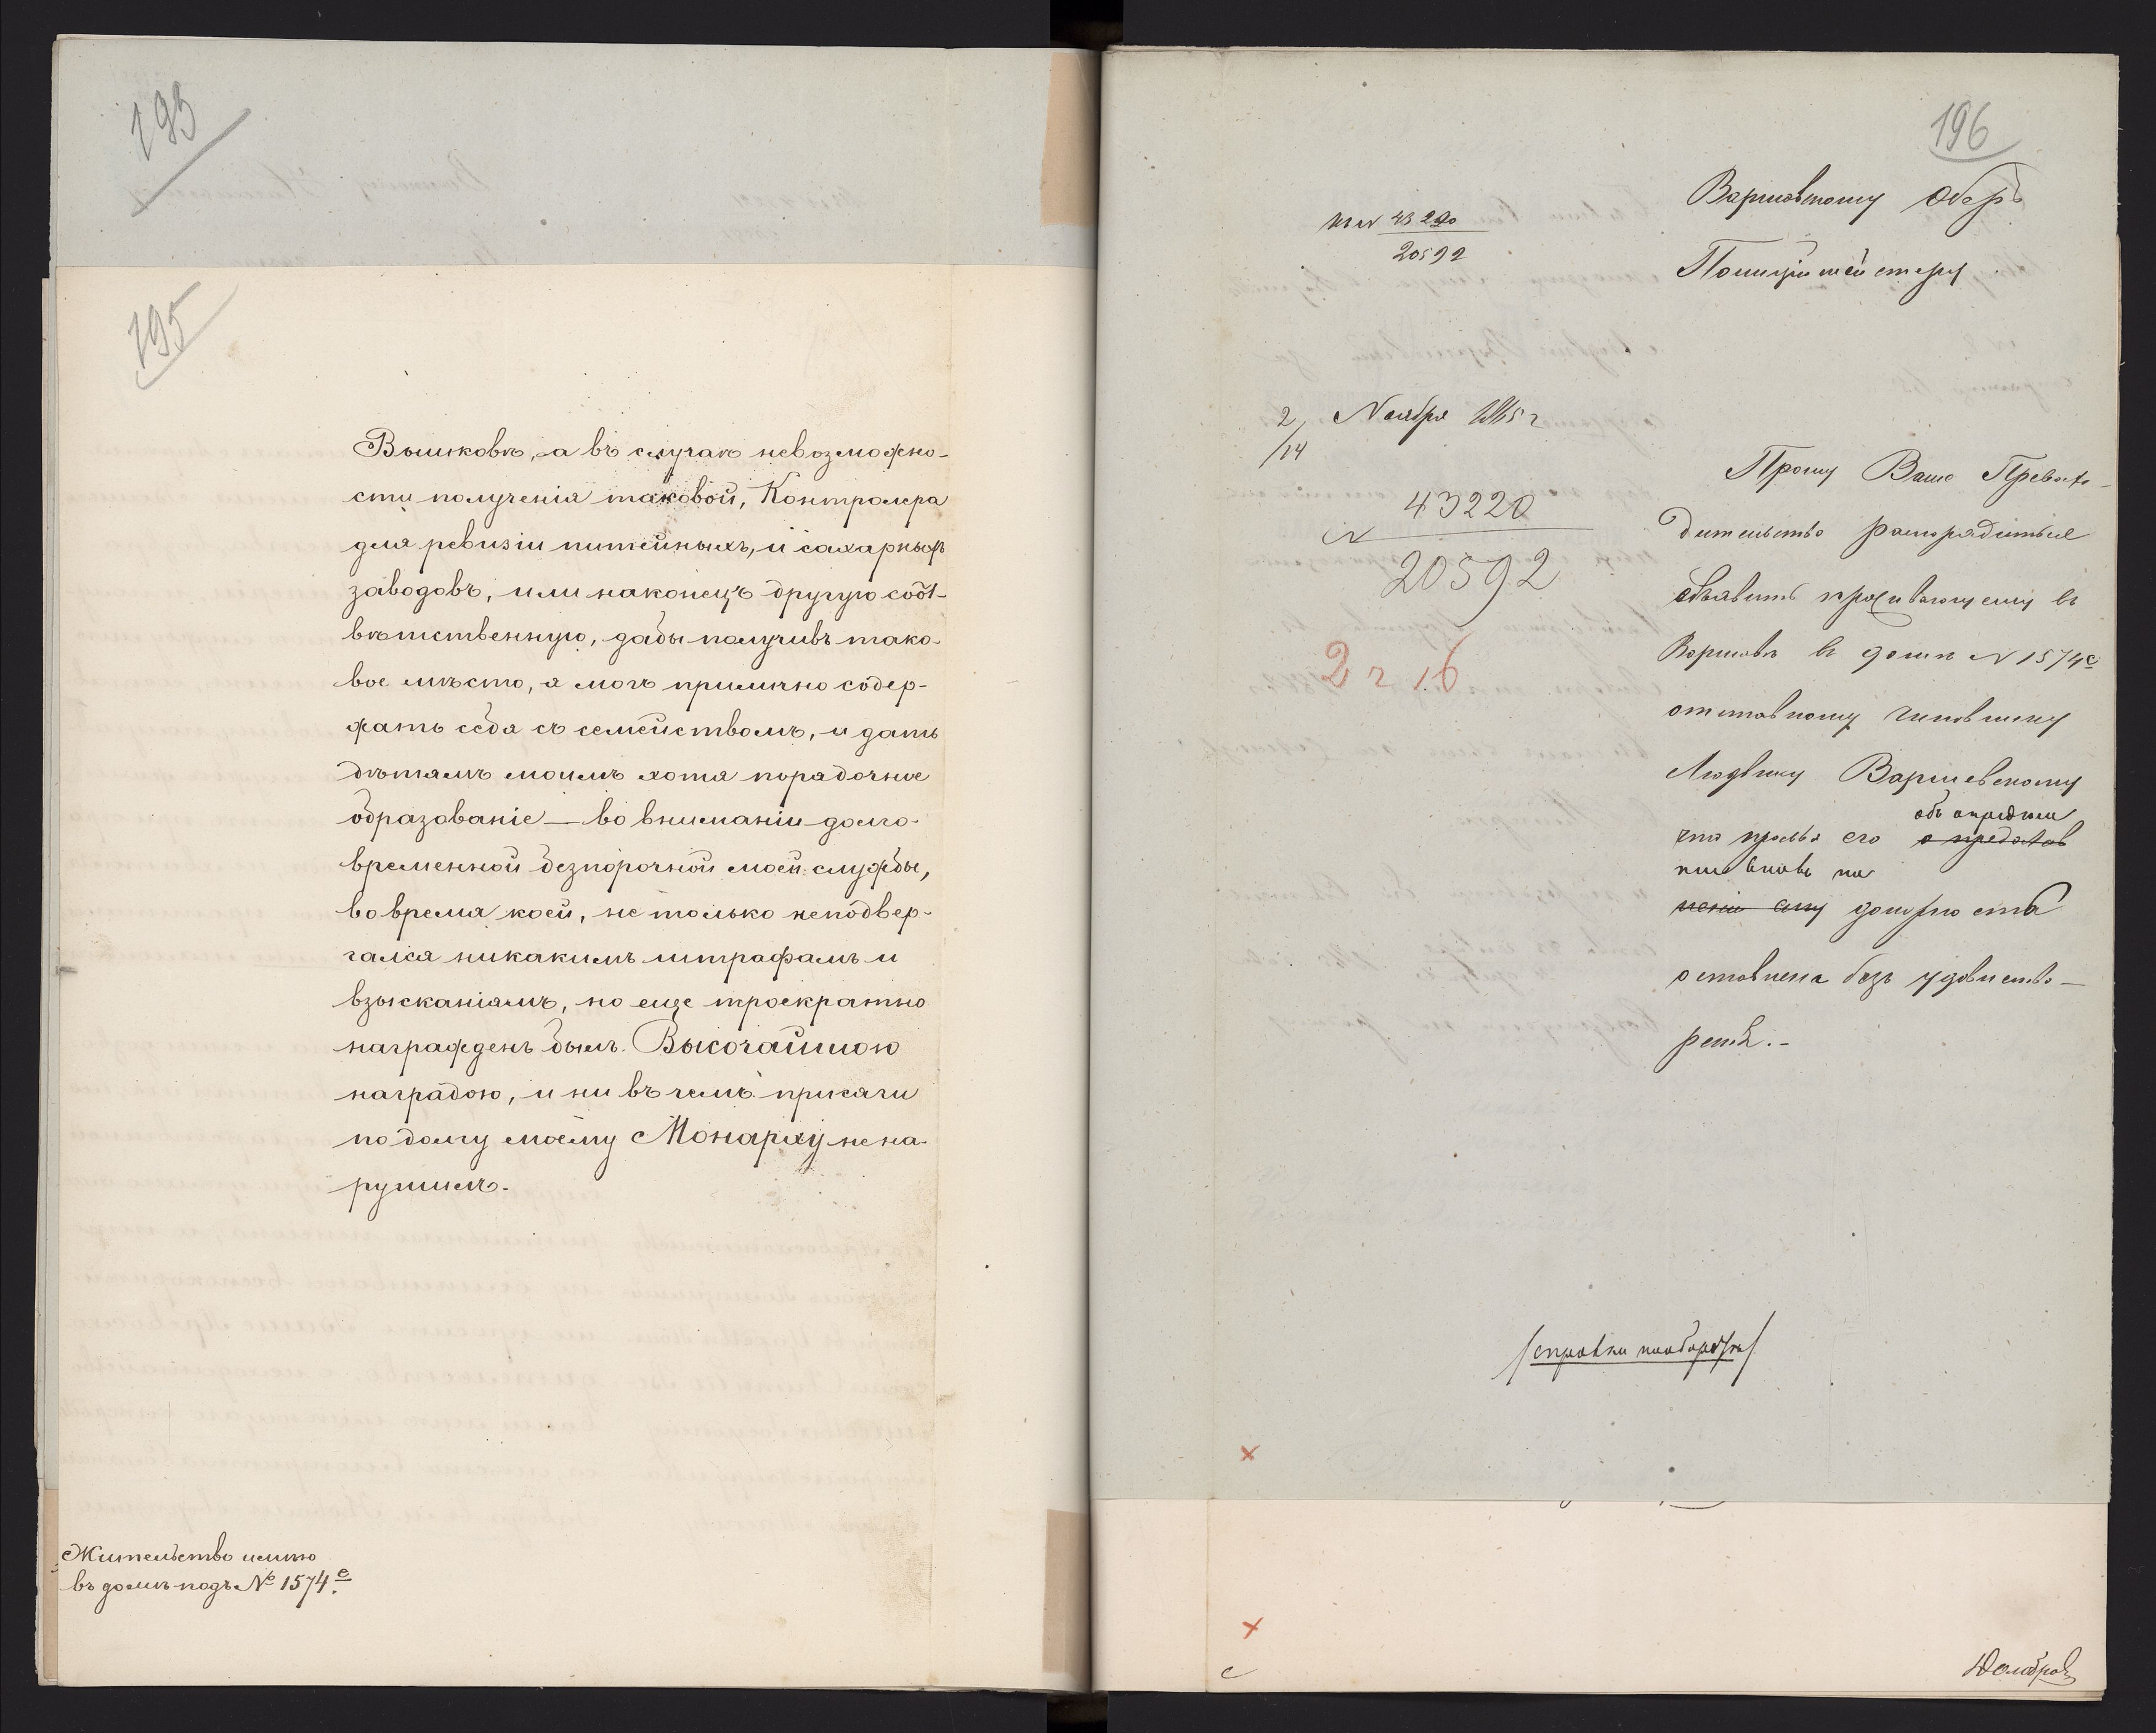 193
195
Вышковѣ, а въ случаѣ невозможно-
сти полученія таковой, Контролера
для ревизіи питейныхъ, и сахарныхъ
заводовъ, или наконецъ другую соот-
вѣтственную, дабы получивъ тако-
вое мѣсто, я могъ прилично содер-
жать себя съ семействомъ, и дать
дѣтямъ моимъ хотя порядочное
образованіе — во вниманіи долго-
временной безпорочной моей службы,
во время коей, не только неподвер-
гался никакимъ штрафамъ и
взысканіямъ, но еще троекратно
награжденъ былъ Высочайшою
наградою, и ни въ чемъ присяги
по долгу моему Монарху нена-
рушилъ.
Жительство имѣю
въ домѣ подъ № 1574 е.
196
Варшавскому Оберъ
Полицiймейстеру
43220
20592
2/14 Ноября 1865 г
№ 43220
20592
2 г 16
Прошу Ваше Превосхо-
дительство распорядиться
объявить проживающему въ
Варшавѣ въ домѣ № 1574 е
отставному чиновнику
Людвику Варшевскому
объ опредѣле
что просьба его о предостав
ніи вновь на
леніи ему должность
оставлена безъ удовлетво-
ренія.-
/справки наоборотѣ/